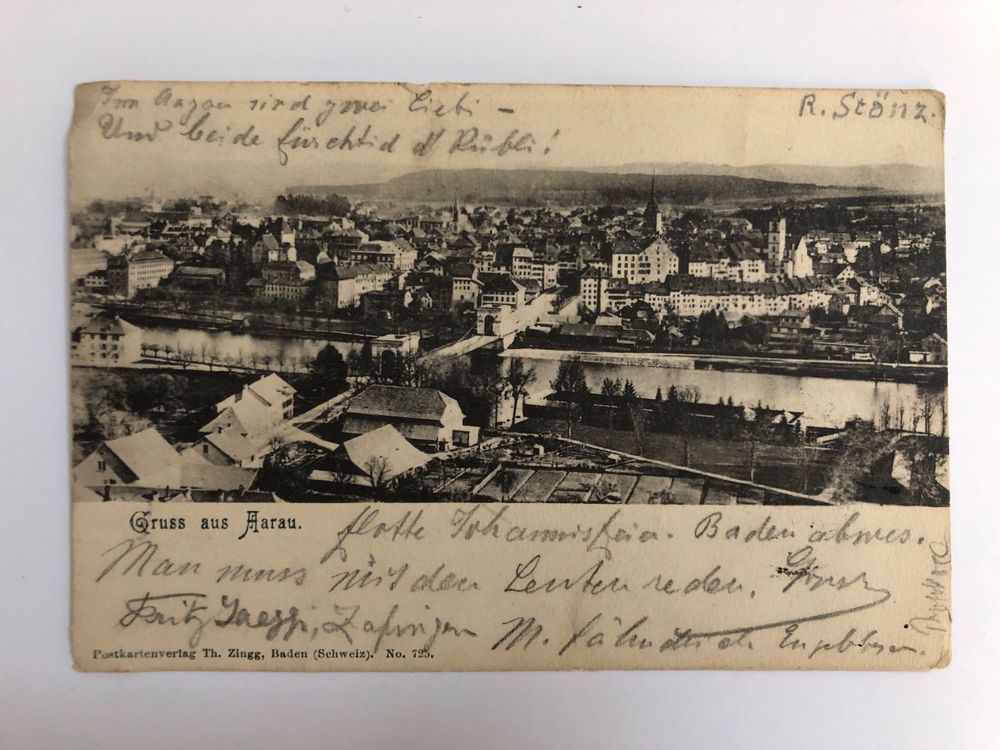 Im Aargau sind zwei Liebi –
R. Stönz.
Und beide fürchtid d' Rübli!
Gruss aus Aarau.
flotte Johannisfeier. Baden abwes.
Man muss mit den Leuten reden.
Fritz Jaeggi, Zofingen
M.
Postkartenverlag Th. Zingg, Baden (Schweiz). No. 725.